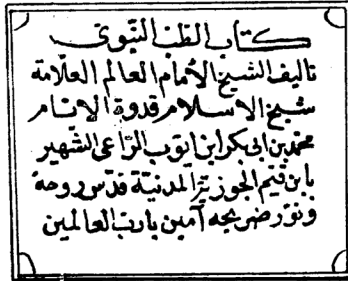 كتاب الطب النبوي
تاليف الشيخ الأمام العالم العلامة
شيخ الاسلام قدوة الانام
محمد بن ابى بكر ابن ايوب الزراعى الشهير
بابن قيم الجوزية المدنية قدس روحه
ونور ضريحه آمين يارب العالمين